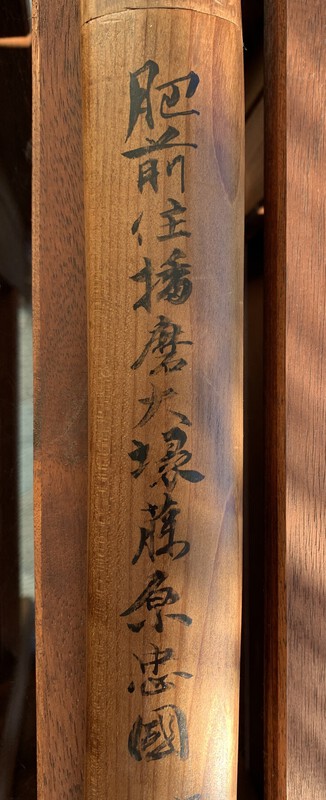 肥前住播磨大掾藤原忠國